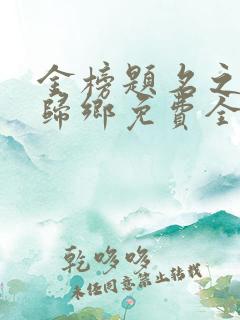 金榜題名之
歸鄉免費全
乾哆哆
未经同意禁止转载